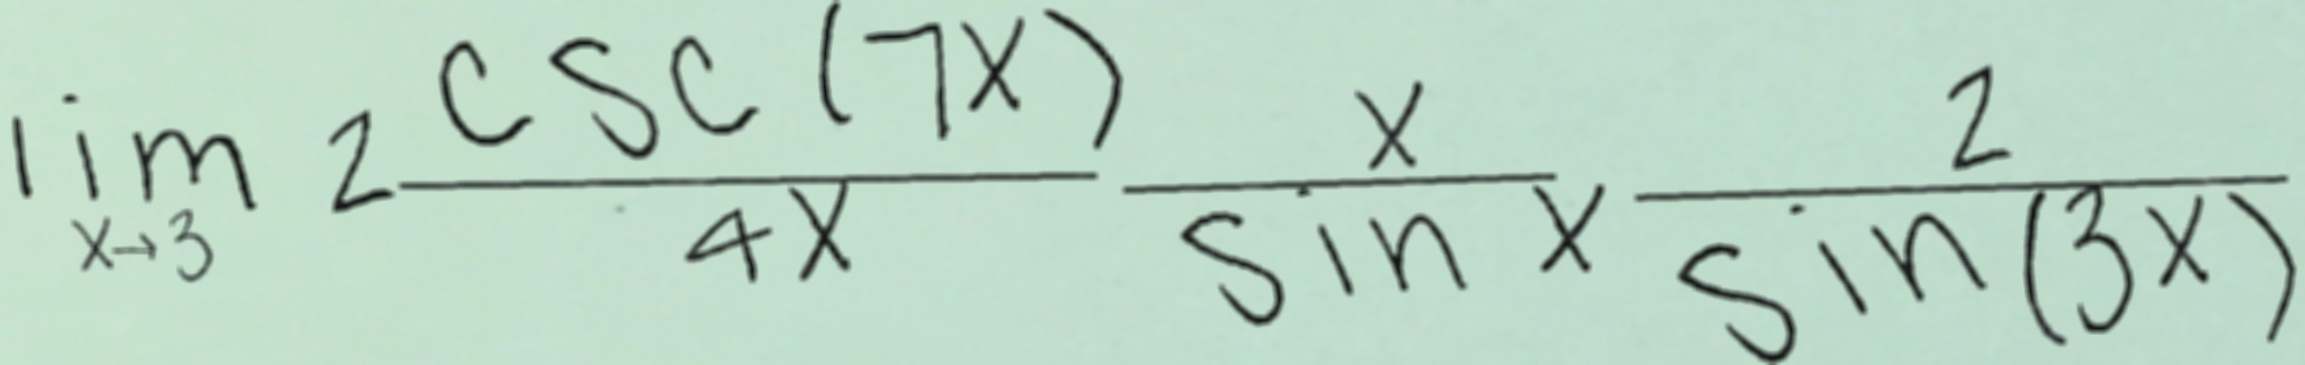 \lim_{x \to 3} 2 \frac{\csc(7x)}{4x} \frac{x}{\sin x} \frac{2}{\sin(3x)}